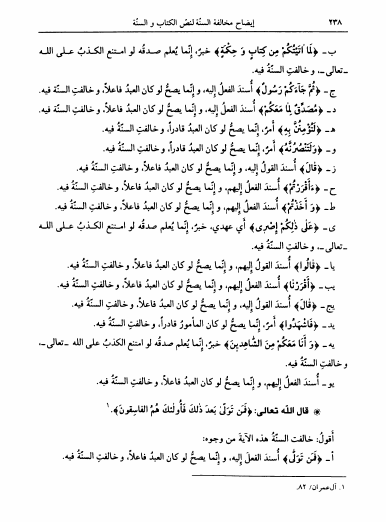 ٢٣٨ إيضاح مخالفة السنّة لنصّ الكتاب و السنّة
ب ـ ﴿لَمٰا اٰتَيْتُكُمْ مِن كِتٰابٍ وَ حِكْمَةٍ﴾ خبرٌ، إنّما يُعلم صدقُه لو امتنع الكذبُ على اللـه
ـ تعالى ـ، و خالفتِ السنّةُ فيه.
ج ـ ﴿ثُمَّ جٰاءَكُمْ رَسُولٌ﴾ أُسندَ الفعلُ إليه، و إنّما يصحُّ لو كان العبدُ فاعلاً، و خالفتِ السنّةُ فيه.
د ـ ﴿مُصَدِّقٌ لِمٰا مَعَكُمْ﴾ أُسندَ الفعلُ إليه، و إنّما يصحُّ لو كان العبدُ فاعلاً، و خالفتِ السنّةُ فيه.
هـ ـ ﴿لَتُؤْمِنُنَّ بِهِ﴾ أمرٌ، إنّما يصحُّ لو كان العبدُ قادراً، و خالفتِ السنّةُ فيه.
و ـ ﴿وَلَتَنْصُرُنَّهُ﴾ أمرٌ، إنّما يصحُّ لو كان العبدُ قادراً، و خالفتِ السنّةُ فيه.
ز ـ ﴿قٰالَ﴾ أُسندَ القولُ إليه، و إنّما يصحُّ لو كان العبدُ فاعلاً، و خالفتِ السنّةُ فيه.
ح ـ ﴿ءَأَقْرَرْتُمْ﴾ أُسندَ الفعلُ إليهم، و إنّما يصحُّ لو كان العبدُ فاعلاً، و خالفتِ السنّةُ فيه.
ط ـ ﴿وَ أَخَذْتُمْ﴾ أُسندَ الفعلُ إليهم، و إنّما يصحُّ لو كان العبدُ فاعلاً، و خالفتِ السنّةُ فيه.
ى ـ ﴿عَلىٰ ذٰلِكُمْ إِصْرِى﴾ أي عهدي، خبرٌ، إنّما يُعلم صدقُه لو امتنع الكذبُ على اللـه
ـ تعالى ـ، و خالفتِ السنّةُ فيه.
يا ـ ﴿قٰالُوا﴾ أُسندَ القولُ إليهم، و إنّما يصحُّ لو كان العبدُ فاعلاً، و خالفتِ السنّةُ فيه.
يب ـ ﴿أَقْرَرْنٰا﴾ أُسندَ الفعلُ إليهم، و إنّما يصحُّ لو كان العبدُ فاعلاً، و خالفتِ السنّةُ فيه.
يج ـ ﴿قٰالَ﴾ أُسندَ القولُ إليه، و إنّما يصحُّ لو كان العبدُ فاعلاً، و خالفتِ السنّةُ فيه.
يد ـ ﴿فَاشْهَدُوا﴾ أمرٌ، إنّما يصحُّ لو كان المأمورُ قادراً، و خالفتِ السنّةُ فيه.
يه ـ ﴿وَ أَنَا مَعَكُمْ مِنَ الشّٰاهِدِينَ﴾ خبرٌ، إنّما يُعلم صدقُه لو امتنع الكذبُ على الله ـ تعالى ـ،
و خالفتِ السنّةُ فيه.
يو ـ أُسندَ الفعلُ إليهم، و إنّما يصحُّ لو كان العبدُ فاعلاً، و خالفتِ السنّةُ فيه.
❋ قال اللّه تعالى: ﴿فَمَنْ تَوَلّٰى بَعدَ ذٰلكَ فَأُولٰئكَ هُمُ الفاسِقونَ﴾.١
أقولُ: خالفت السنّةُ هذه الآيةَ من وجوه:
أ ـ ﴿فَمَن تَوَلّٰى﴾ أُسندَ الفعلُ إليه، و إنّما يصحُّ لو كان العبدُ فاعلاً، و خالفتِ السنّةُ فيه.
١. آل عمران / ٨٢.